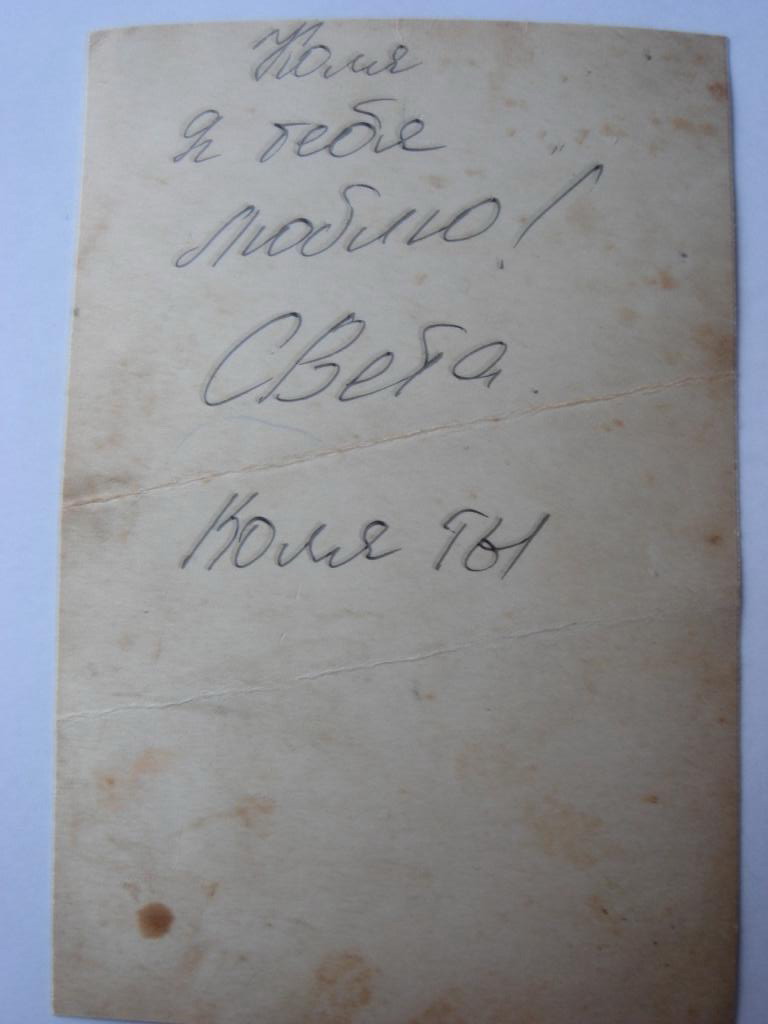 Коля
Я тебя
люблю!
СВета.
Коля ты